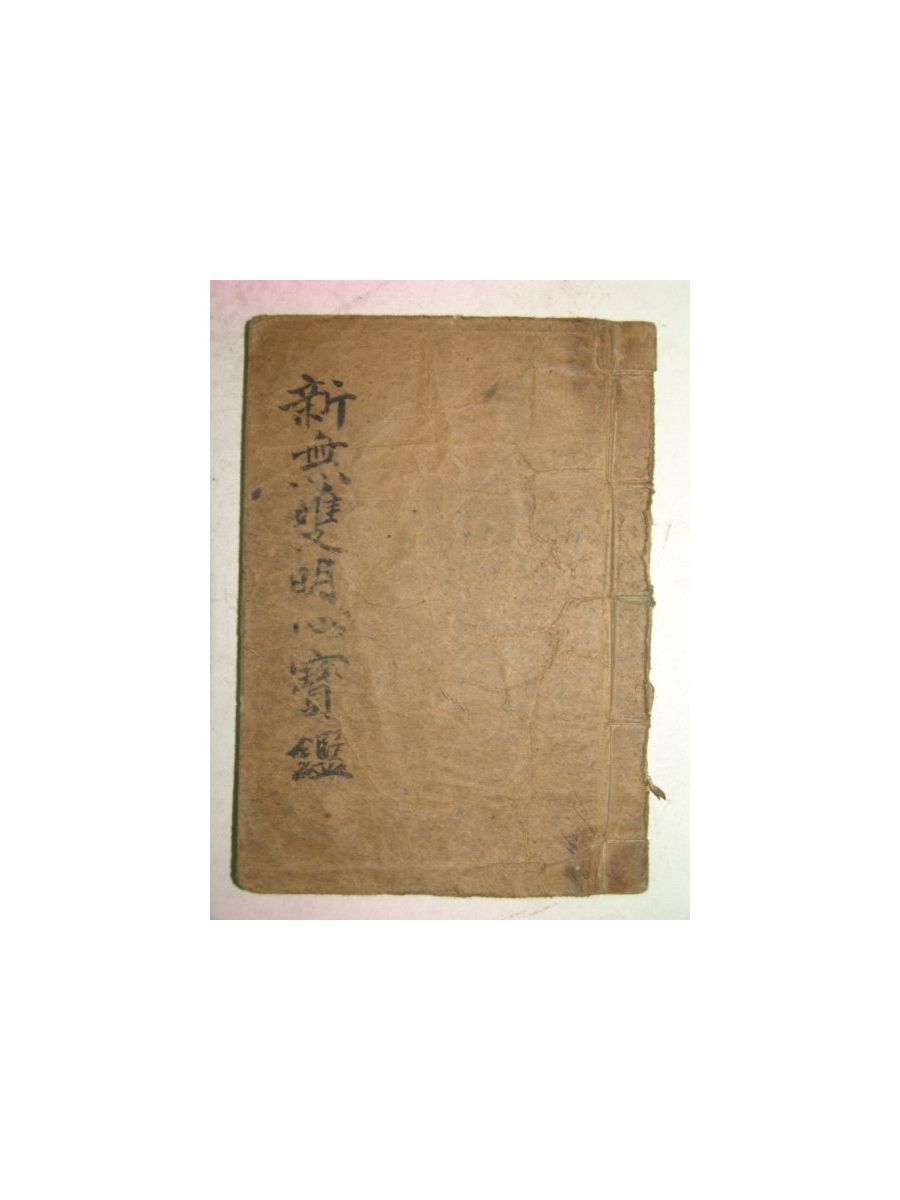 新無雙明心寶鑑